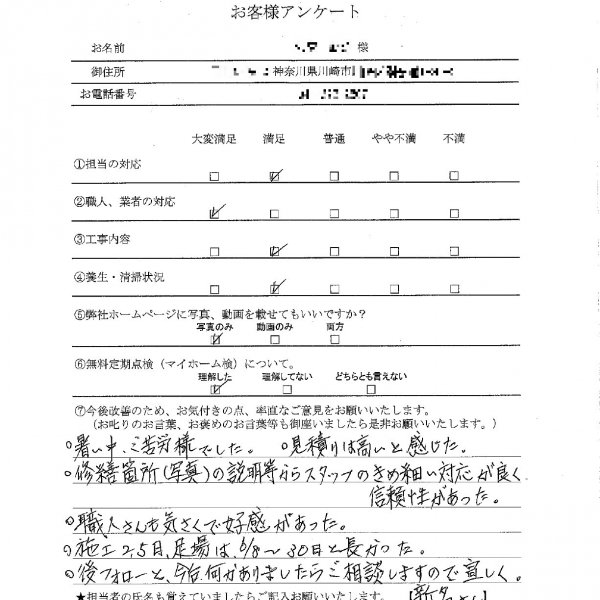 お客様アンケート
お名前 様
御住所 神奈川県川崎市
お電話番号
大変満足 満足 普通 やや不満 不満
①担当の対応
②職人、業者の対応
③工事内容
④養生・清掃状況
⑤弊社ホームページに写真、動画を載せてもいいですか?
写真のみ 動画のみ 両方
⑥無料定期点検(マイホーム検)について。
理解した 理解してない どちらとも言えない
⑦今後改善のため、お気付きの点、率直なご意見をお願いいたします。
(お叱りのお言葉、お褒めのお言葉等も御座いましたら是非お願いいたします。)
○暑い中、ご苦労様でした。 ○見積りは高いと感じた。
○修繕箇所(写真)の説明等からスタッフのきめ細い対応が良く
信頼性があった。
○職人さんも気さくで好感があった。
○施工25日、足場は6/8〜30日と長かった。
○後フォローと、今后、何かありましたらご相談しますので宜しく。
★担当者の氏名も覚えていましたらご記入お願いいたします。